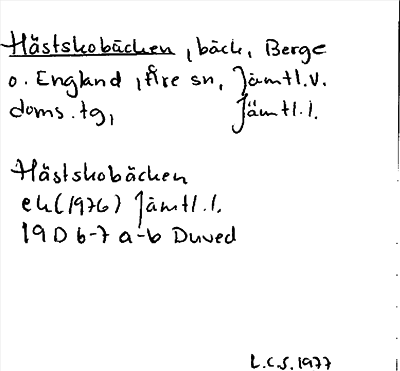 Hästskobäcken, bäck, Berge
o. England, Åre sn, Jämtl.v.
doms.tg, Jämtl.l.
Hästskobäcken
ek (1976) Jämtl.l.
19D 6-7 a-b Duved
L.C.S. 1977